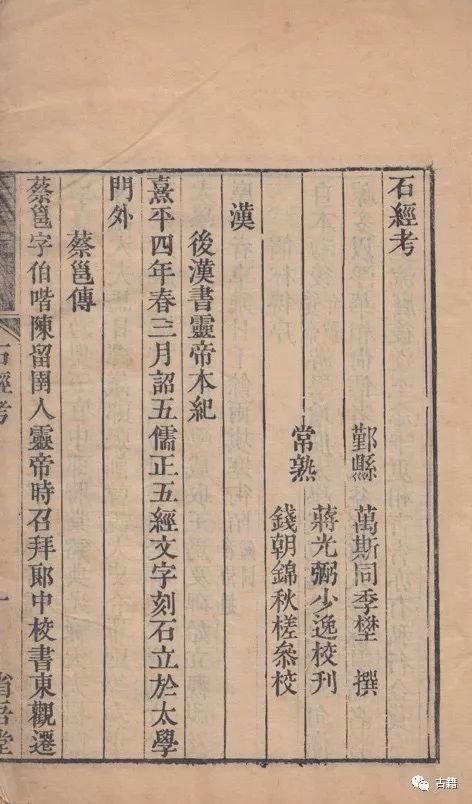 石經考
鄞縣 萬斯同季壄 撰
常熟
蔣光弼少逸校刊
錢朝錦秋槎叅校
漢
後漢書靈帝本紀
熹平四年春三月詔五儒正五經文字刻石立於太學
門外
蔡邕傳
蔡邕字伯喈陳留圉人靈帝時召拜郎中校書東觀遷
石經考
一
省吾堂
古籍